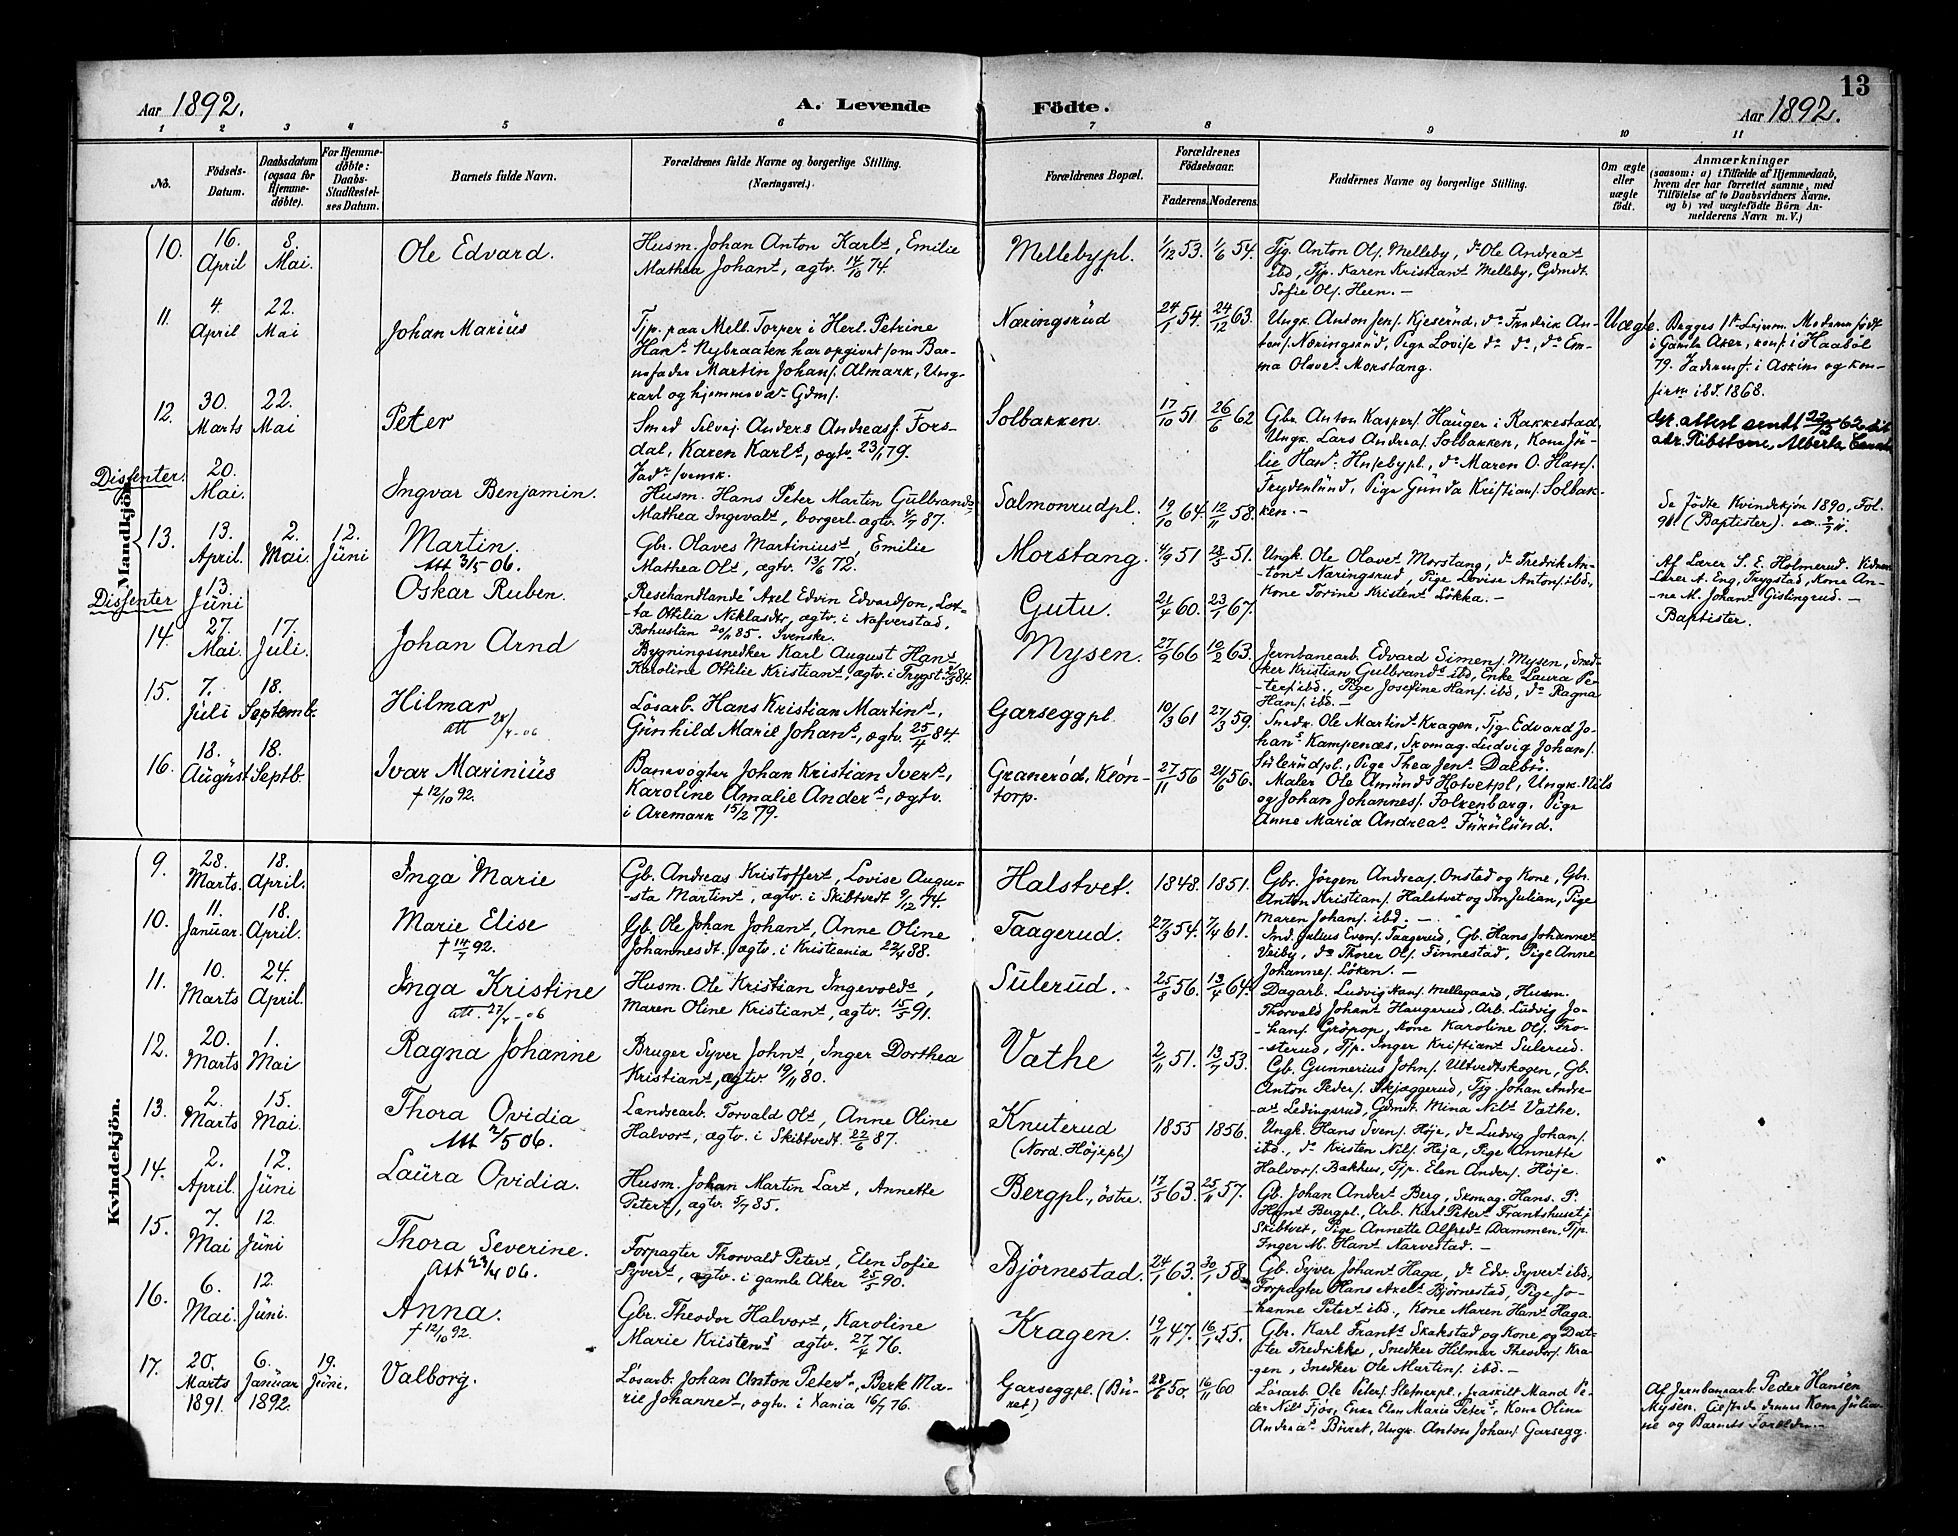 13
Aar 1892.
A. Levende
Födte.
Aar 1892.
1 2 3 4 5 6 7 8 9 10 11
No.
Födsels-
Datum.
Daabsdatum
(ogsaa for
Hjemme-
døbte).
For Hjemme-
døbte:
Daabs-
Stadfæstel-
ses Datum.
Barnets fulde Navn.
Forældrenes fulde Navne og borgerlige Stilling.
(Næringsvei.)
Forældrenes Bopæl.
Forældrenes
Födselsaar.
Faderens. Moderens.
Faddernes Navne og borgerlige Stilling.
Om ægte
eller
uægte
født.
Anmærkninger
(saasom: a) i Tilfælde af Hjemmedaab,
hvem der har forrettet samme, med
Tilföielse af to Daabsvidners Navne.
og b) ved uægtefödte Börn An-
melderens Navn m. V.)
Mandkjön.
10. 16. April 8. Mai. Ole Edvard.
Husm. Johan Anton Karls, Emilie
Mathea Johans, ægtv. 14/10 74.
Mellebypl. 1/12 53. 1/6 54.
Tjg. Anton Ols. Melleby, do Ole Andreas
ibd, Tjp. Karen Kristians Melleby, Gdmdt.
Sofie Ols. Heen. —
11. 4. April 22. Mai Johan Marius
Tjp. paa Mell. Torper i Herl. Petrine
Hans Nybraaten har opgivet som Bar-
nefader Martin Johans. Almark, Ung-
karl og hjemmevær. Gdms.
Næringsrud 24/1 54. 24/12 63.
Ungk. Anton Jens. Kjeserud, do Fredrik An-
tons. Næringsrud, Pige Lovise do do, do Em-
ma Olaves Morstang.
Uægte. Begges 1ste Lejerm. Moderen født
i Gamle Aker, konf. i Haabøl
79. Faderen f. i Askim og kon-
firm. ibd. 1868.
12. 30. Marts 22. Mai Peter
Smed Selvej. Anders Andreass. Fors-
dal, Karen Karls, ægtv. 23/11 79.
Fadr svensk.
Solbakken 17/10 51 26/6 62
Gbr. Anton Kaspers. Hauger i Rakkestad,
Ungk. Lars Andreas. Solbakken, Kone Ju-
lie Hans. Husebypl., do Maren O. Hans.
Frydenlund, Pige Gunda Kristians. Solbak-
ken. —
attest sendt 62 til
adr. Ribstone, Alberta
Dissenter. 20. Mai. Ingvar Benjamin.
Husm. Hans Peter Martin Gulbrands,
Mathea Ingevals, borgerl. ægtv. 4/7 87.
Salmonrudpl. 19/10 64. 12/11 58.
Se födte Kvindekjön 1890, Fol.
(Baptister).
13. 13. April 2. Mai 12. Juni Martin.
Att 3/5 06.
Gbr. Olaves Martinius, Emilie
Mathea Ols, ægtv. 13/6 72.
Morstang. 4/9 51 28/3 51.
Ungk. Ole Olaves Morstang, do Fredrik An-
tons Næringsrud, Pige Lovise Antons. ibd,
Kone Torine Kristens Løkka. —
Af Lærer S. E. Holmerud. Vidner
Lærer A. Eng, Trygstad, Kone An-
ne M. Johans Gislingrud. —
Dissenter 13. Juni Oskar Ruben.
"Resehandlande" Axel Edvin Edvardson, Lot-
ta Ottilia Niklasdtr, ægtv. i Nafverstad,
Bohuslän 20/11 85. Svenske.
Gutu. 21/4 60. 23/1 67.
Baptister.
14. 27. Mai. 17. Juli. Johan Arnd
Bygningssnedker Karl August Hans
Karoline Ottilie Kristians, ægtv. i Trygst. 84.
Mysen. 27/9 66 10/2 63.
Jernbanearb. Edvard Simens. Mysen, Sned-
ker Kristian Gulbrands ibd, Enke Laura Pe-
ters. ibd., Pige Josefine Hans. ibd, do Ragna
Hans. ibd. —
15. 7. Juli 18. Septemb. Hilmar
att 28/4-06
Lösarb. Hans Kristian Martins,
Gunhild Marie Johans, ægtv. 25/4 84.
Garseggpl. 10/3 61 27/3 59.
Snedk. Ole Martins Kragen, Tjg. Edvard Jo-
hans Kampenæs, Skomag. Ludvig Johans.
Sulerudpl., Pige Thea Jens Dalbro.
16. 18. August 18. Septb. Ivar Marinius
† 12/10 92.
Banevogter Johan Kristian Ivers,
Karoline Amalie Anders, ægtv.
i Aremark 15/2 79.
Granerød, Klön-
torp. 27/11 56 21/6 56.
Maler Ole Amunds Hotvetpl, Ungk. Nils
og Johan Johannes. Folkenborg, Pige
Anne Maria Andreas Furulund.
Kvindekjön.
9. 28. Marts. 18. April. Inga Marie
Gb. Andreas Kristoffers, Lovise Augu-
sta Martins, ægtv. i Skibtvedt 9/12 74.
Halstvet. 1848. 1851.
Gbr. Jörgen Andreas. Onstad og Kone, Gbr.
Anton Kristians. Halstvet og Søn Julian, Pige
Maren Johans. ibd. —
10. 11. Januar. 18. April. Marie Elise
† 14/7 92.
Gb. Ole Johan Johans, Anne Oline
Johannesdt. ægtv. i Kristiania 22/4 88.
Taagerud. 27/3 54. 7/4 61.
Ind. Julius Evens. Taagerud, Gb. Hans Johannes
Veiby, do Thorer Ols. Finnestad, Pige Anne
Johannes. Løken. —
11. 10. Marts 24. April. Inga Kristine
att. 27/4-06
Husm. Ole Kristian Ingevolds,
Maren Oline Kristians, ægtv. 15/5 91.
Sulerud. 25/8 56. 13/4 64.
Dagarb. Ludvig Hans. Mellegaard, Husm.
Thorvald Johans Haugerud, Arb. Ludvig Jo-
hans. Gröpop, Kone Karoline Ols. Fro-
sterud, Tjp. Inger Kristians Sulerud.
12. 20. Marts 1. Mai Ragna Johanne
Bruger Syver Johns, Inger Dorthea
Kristians, ægtv. 19/11 80.
Vathe 2/11 51. 13/7 53.
Gb. Gunnerius Johns. Ultvedtskogen, Gb.
Anton Peders. Skjæggerud, Tjg. Johan Andre-
as Ledingsrud, Gdmdt. Mina Nils Vathe.
13. 2. Marts 15. Mai. Thora Ovidia
Att 2/5 06.
Landearb. Torvald Ols, Anne Oline
Halvors, ægtv. i Skibtvedt. 22/6 87.
Knuterud
(Nord. Höjepl.) 1855 1856.
Ungk. Hans Svens. Høje, do Ludvig Johans.
ibd., do Kristen Nils. Heja, Pige Annette
Halvors. Bakhus, Tjp. Elen Anders. Höje.
14. 2. April. 12. Juni Laura Ovidia.
Husm. Johan Martin Lars, Annette
Peters, ægtv. 5/7 85.
Bergpl., östre. 17/5 63. 25/11 57.
Gb. Johan Anders Berg, Skomag. Hans. P.
Hans Bergpl., Arb. Karl Peters Frantshuset i
Skibtvet, Pige Annette Alfreds Dammen, Tjp.
Inger M. Hans Narvestad. —
15. 7. Mai 12. Juni Thora Severine.
Att 23/4 06.
Forpagter Thorvald Peters, Elen Sofie
Syvers, ægtv. i gamle Aker 25/5 90.
Björnestad. 24/1 63. 30/1 58
Gb. Syver Johans Haga, do Edv. Syvers ibd,
Forpagter Hans Axels Björnestad, Pige Jo-
hanne Peters ibd., Kone Maren Hans Haga.
16. 6. Mai. 12. Juni. Anna.
† 12/10 92.
Gbr. Theodor Halvors, Karoline
Marie Kristens ægtv. 27/4 76.
Kragen. 19/11 47. 16/1 55.
Gbr. Karl Frants Skakstad og Kone og Dat-
ter Fredrikke, Snedker Hilmar Theodors. Kra-
gen, Snedker Ole Martins. ibd. —
17. 20. Marts 1891. 6. Januar 1892. 19. Juni. Valborg.
Lösarb. Johan Anton Peters, Berte Ma-
rie Johannes, ægtv. i Xania 16/7 76.
Garseggpl. (Bu-
ret) 28/6 50. 16/11 60
Lösarb. Ole Peters. Sletnerpl., fraskilt Mand Pe-
der Nils Fjøs, Enke Elen Marie Peters, Kone Olina
Andreas Buret, Ungk. Anton Johans. Garsegg.
Af Jernbanearb. Peder Hansen
Mysen. Tilstede dennes Kone Julia-
ne og Barnets Forældre. —